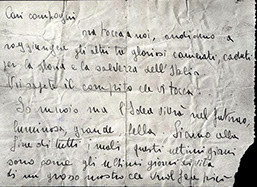 Cari compagni
ora tocca a noi, andiamo a
raggiungere gli altri tre gloriosi compagni, caduti
per la gloria e la salvezza dell'Italia
Voi sapete il compito che vi tocca.
Io muoio ma l'idea vivrà nel futuro,
luminosa, grande bella. Siamo alla
fine di tutti i mali questi ultimi giorni
sono come gli ultimi giorni di vita
di un grosso mostro che vuol fare più